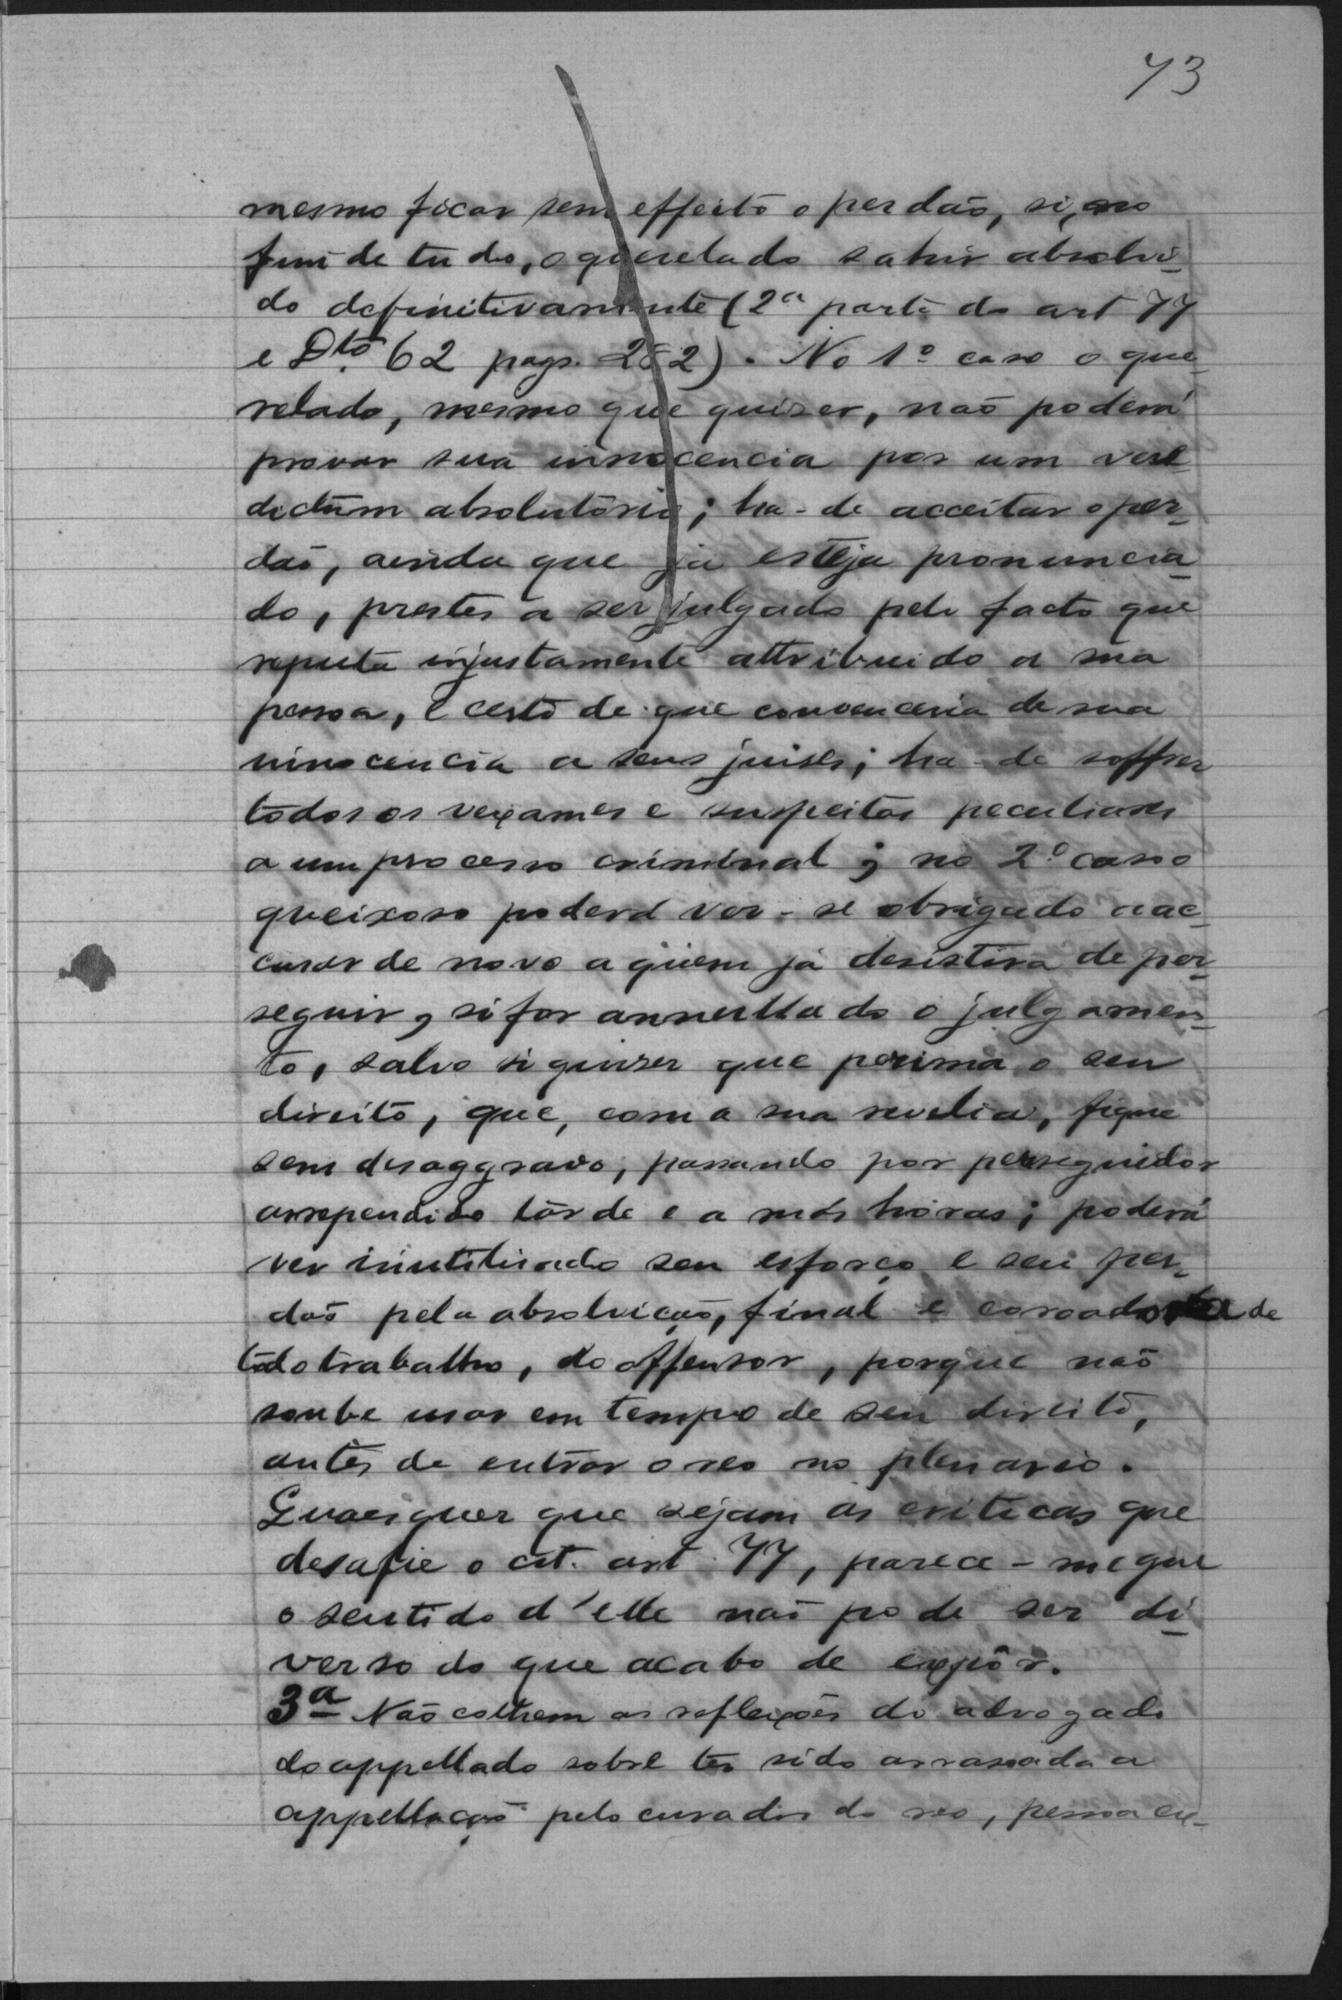 73
mesmo ficar sem effeito o perdão, si, no
fim de tudo, o querelado sahir absolvi-
do definitivamente (2ª parte do art 77
e Dto. 62 pags. 282). No 1º caso o que-
relado, mesmo que quizer, não poderá
provar sua innocencia por um vere
dictum absolutorio; ha-de acceitar o per-
dão, ainda que já esteja pronuncia-
do, prestes a ser julgado pelo facto que
reputa injustamente attribuido a sua
pessoa, e certo de que convenceria de sua
innocencia a seus juises; ha-de soffrer
todos os vexames e suspeitas peculiares
a um processo criminal; no 2º caso o
queixoso poderá ver-se obrigado a ac-
cusar de novo a quem já desistira de per-
seguir, si for annullado o julgamen-
to, salvo si quiser que perima o seu
direito, que, com a sua revelia, fique
sem desaggravo, passando por perseguidor
arrependido tarde e a más horas; poderá
ver inutilisado seu esforço e seu per-
dão pela absolvição, final e coroadora de
todo trabalho, do offensor, porque não
soube usar em tempo de seu direito,
antes de entrar o reo no plenario.
Quaesquer que sejam as criticas que
desafie o cit. art. 77, parece-me que
o sentido d'elle não pode ser di-
verso do que acabo de expôr.
3ª Não colhem as reflexões do advogado
do appellado sobre ter sido arrasoada a
appellação pelo curador do reo, pessoa ex-